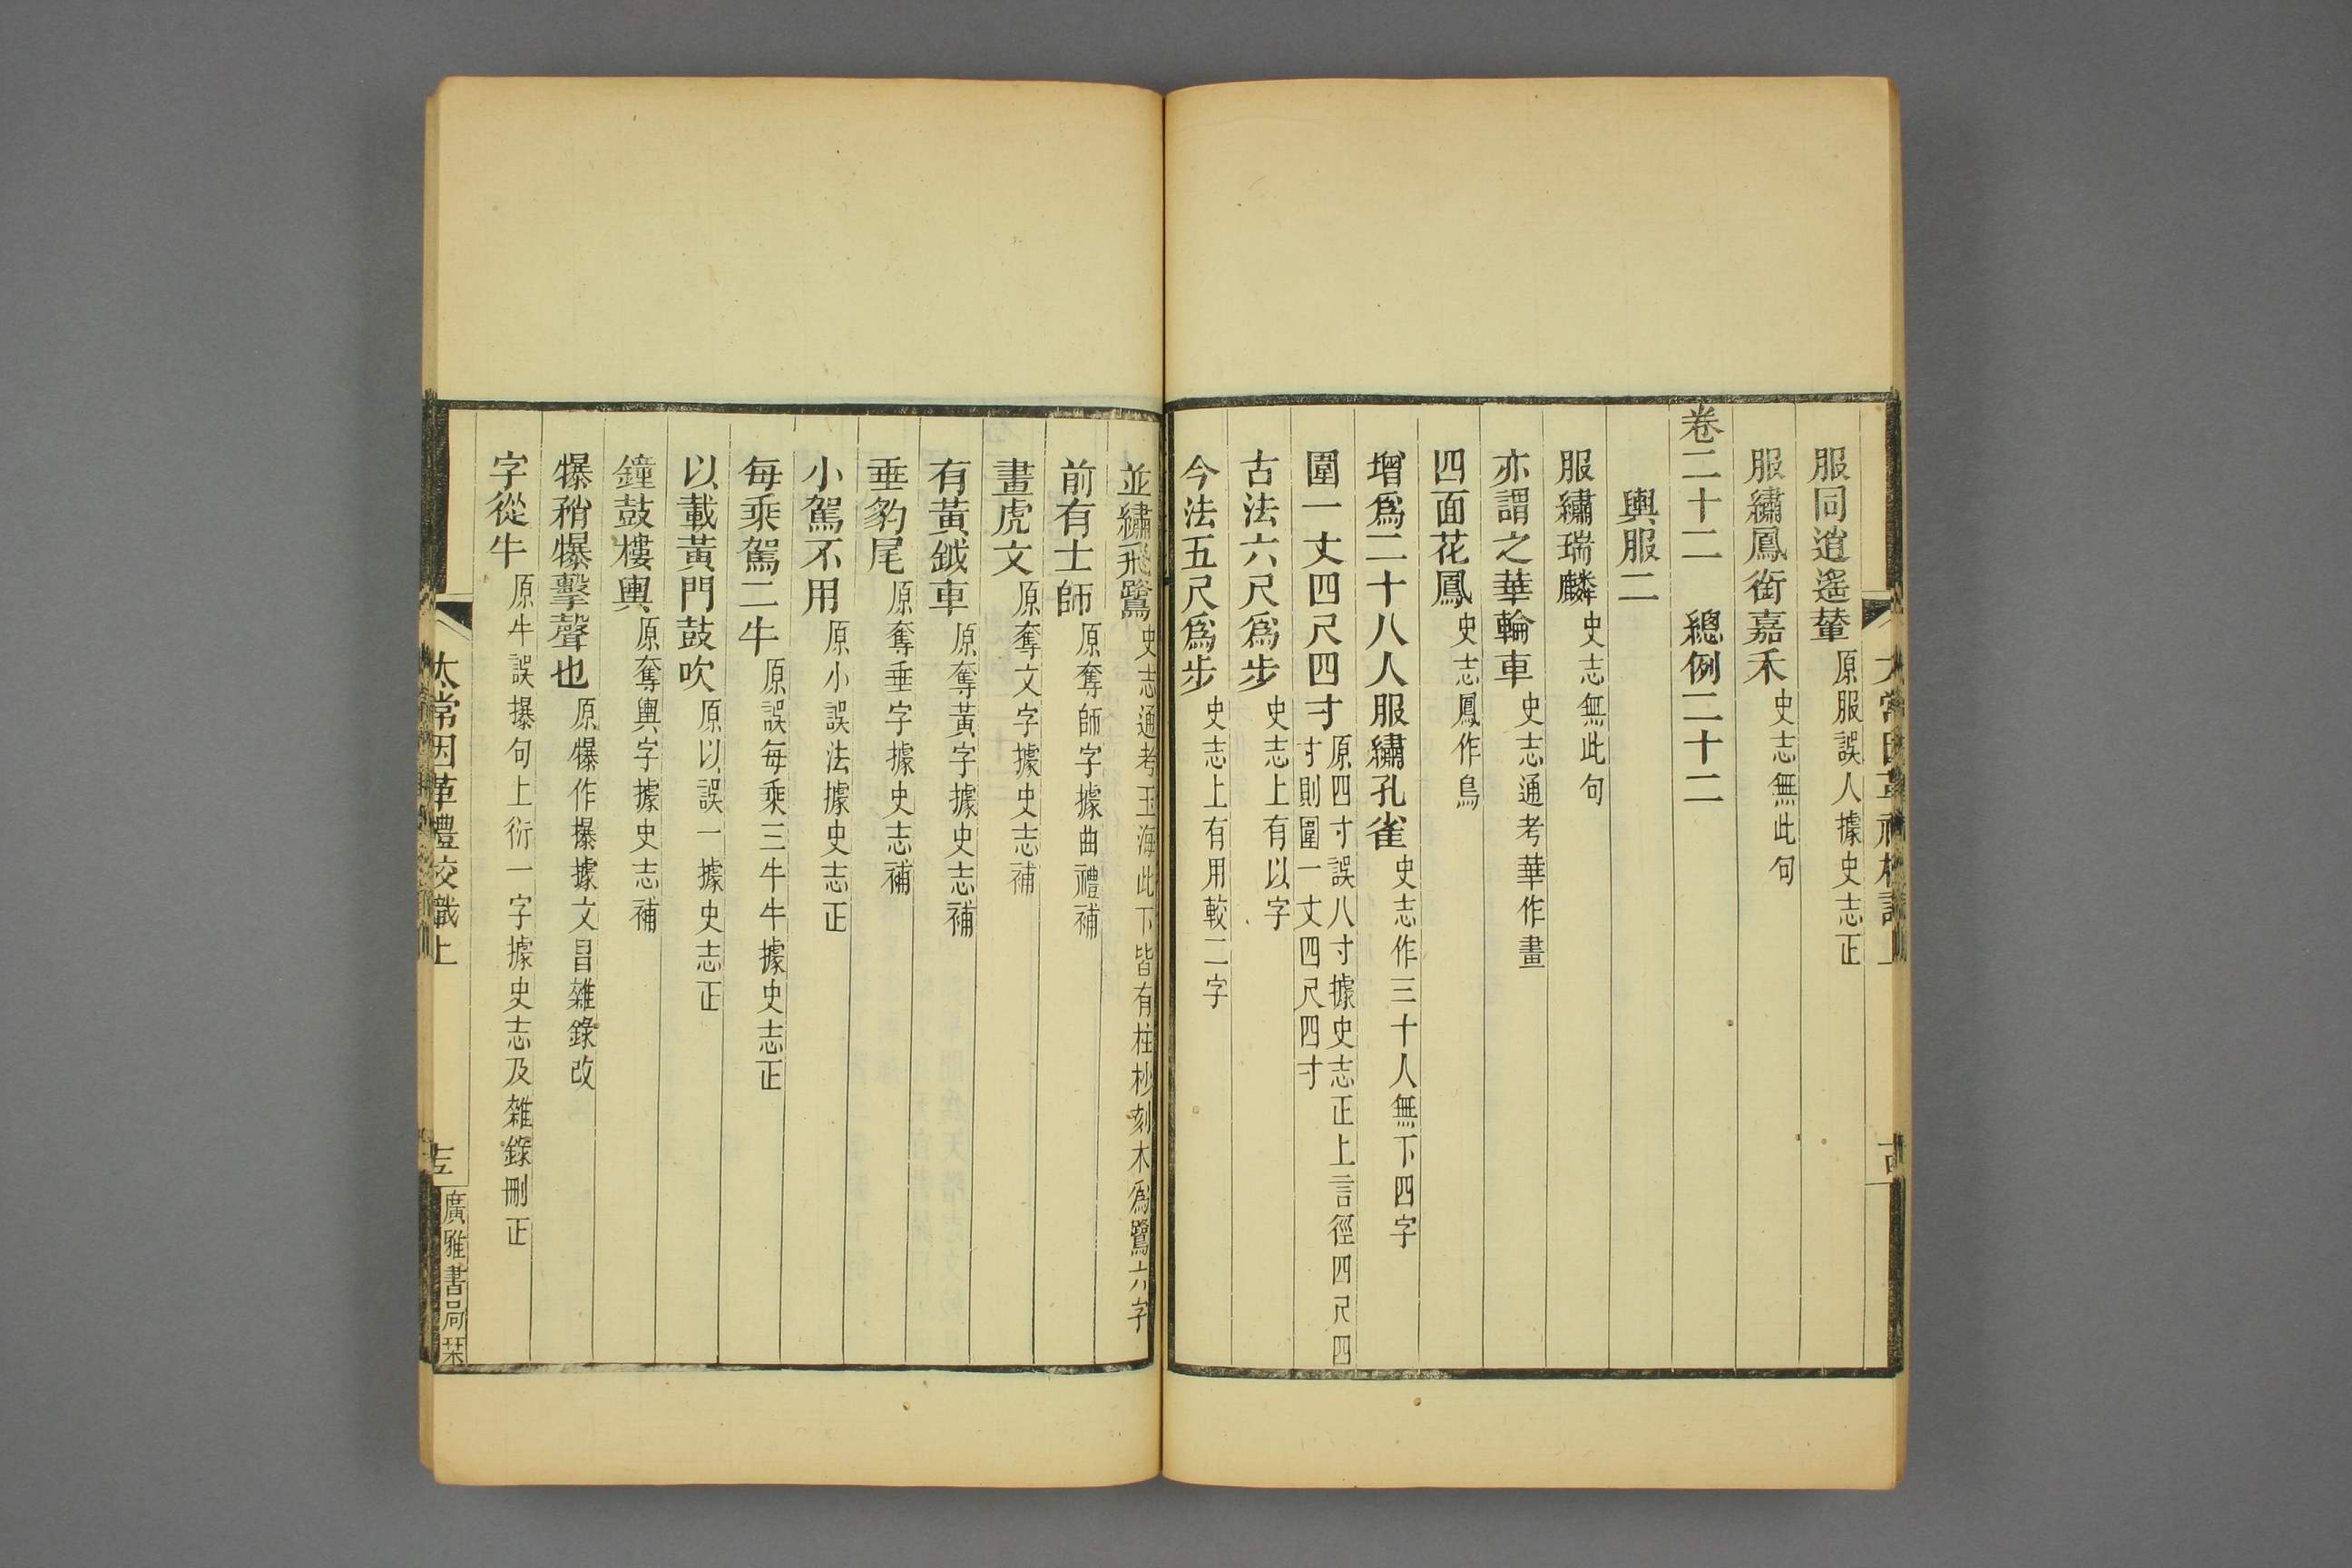 服同逍遙輦原服誤人據史志正
服繡鳳銜嘉禾史志無此句
卷二十二　總例二十二
輿服二
服繡瑞麟史志無此句
亦謂之華輪車史志通考華作畫
四面花鳳史志鳳作鳥
增爲二十八人服繡孔雀史志作三十人無下四字
圍一丈四尺四寸原四寸誤八寸據史志正上言徑四尺四
寸則圍一丈四尺四寸
古法六尺爲步史志上有以字
今法五尺爲步史志上有用較二字
並繡飛鷺史志通考玉海此下皆有柱杪刻木爲鷺六字
前有士師原奪師字據曲禮補
畫虎文原奪文字據史志補
有黃鉞車原奪黃字據史志補
垂豹尾原奪垂字據史志補
小駕不用原小誤法據史志正
每乘駕二牛原誤每乘三牛牛據史志正
以載黃門鼓吹原以誤一據史志正
鐘鼓樓輿原奪輿字據史志補
犦矟犦擊聲也原犦作爆據文昌雜錄改
字從牛原牛誤爆句上衍一字據史志及雜錄刪正
太常因革禮校識上
廣雅書局栞